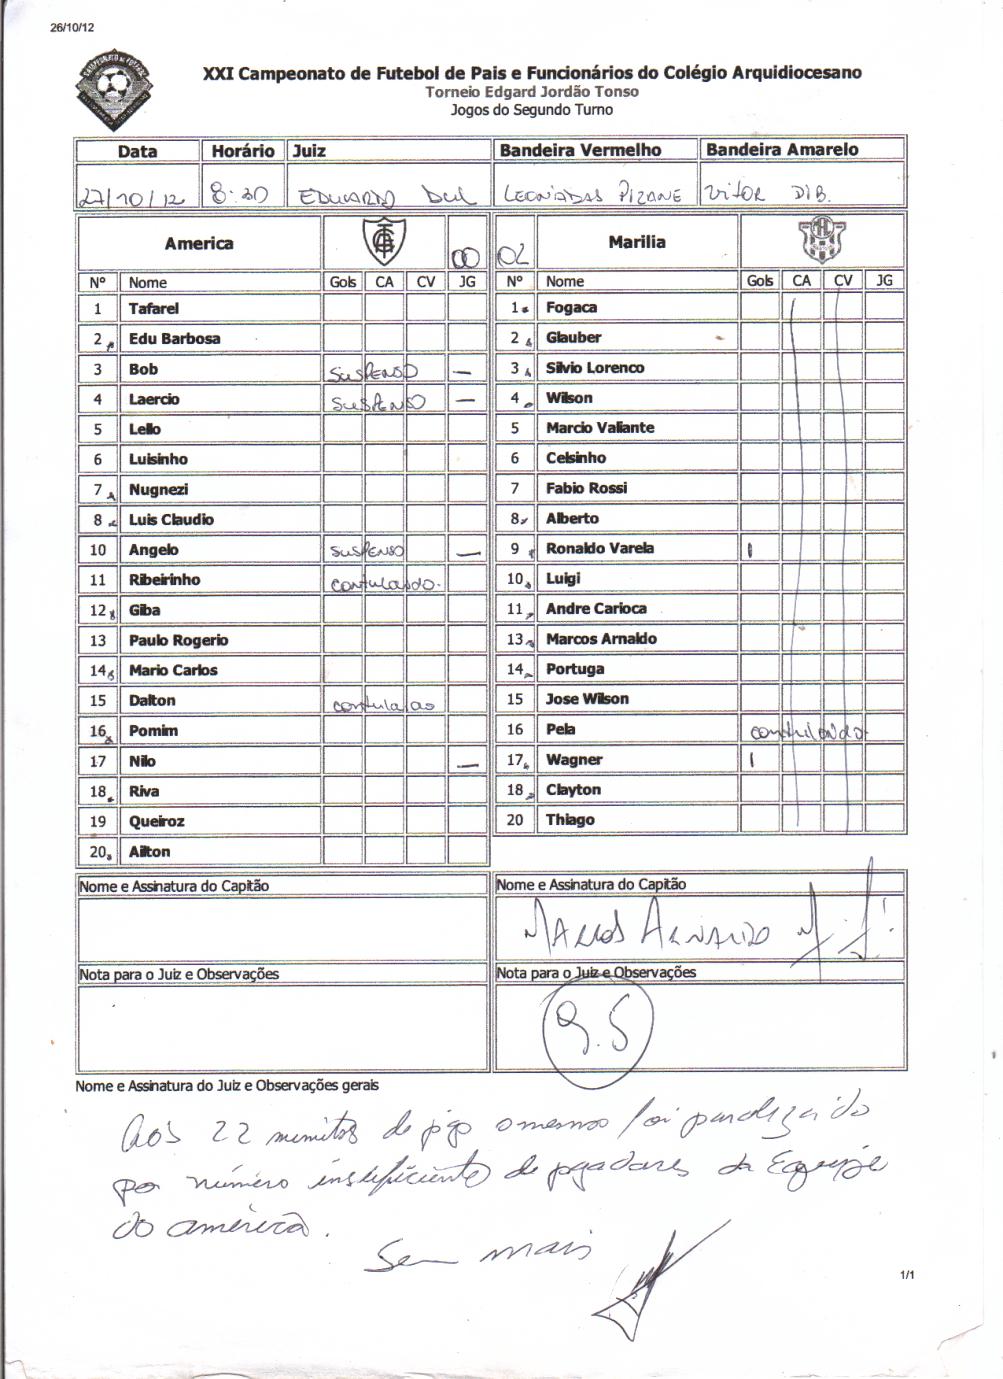 26/10/12
XXI Campeonato de Futebol de Pais e Funcionários do Colégio Arquidiocesano
Torneio Edgard Jordão Tonso
Jogos do Segundo Turno
Data Horário Juiz Bandeira Vermelho Bandeira Amarelo
27/10/12 8:30 EDUARDO LEONIADAS PIZANE VITOR DIB.
America 00 02 Marilia
Nº Nome Gols CA CV JG Nº Nome Gols CA CV JG
1 Tafarel 1 Fogaca
2 Edu Barbosa 2 Glauber
3 Bob SUSPENSO — 3 Silvio Lorenco
4 Laercio SUSPENSO — 4 Wilson
5 Lello 5 Marcio Valiante
6 Luisinho 6 Celsinho
7 Nugnezi 7 Fabio Rossi
8 Luis Claudio 8 Alberto
10 Angelo SUSPENSO — 9 Ronaldo Varela 1
11 Ribeirinho 10 Luigi
12 Giba 11 Andre Carioca
13 Paulo Rogerio 13 Marcos Arnaldo
14 Mario Carlos 14 Portuga
15 Dalton 15 Jose Wilson
16 Pomim 16 Pela
17 Nilo — 17 Wagner 1
18 Riva 18 Clayton
19 Queiroz 20 Thiago
20 Ailton
Nome e Assinatura do Capitão Nome e Assinatura do Capitão
MARCOS ARNALDO
Nota para o Juiz e Observações Nota para o Juiz e Observações
9.5
Nome e Assinatura do Juiz e Observações gerais
Aos 22 minutos de jogo o mesmo foi paralizado
por número insuficiente de jogadores da Equipe
do américa.
Sem mais
1/1